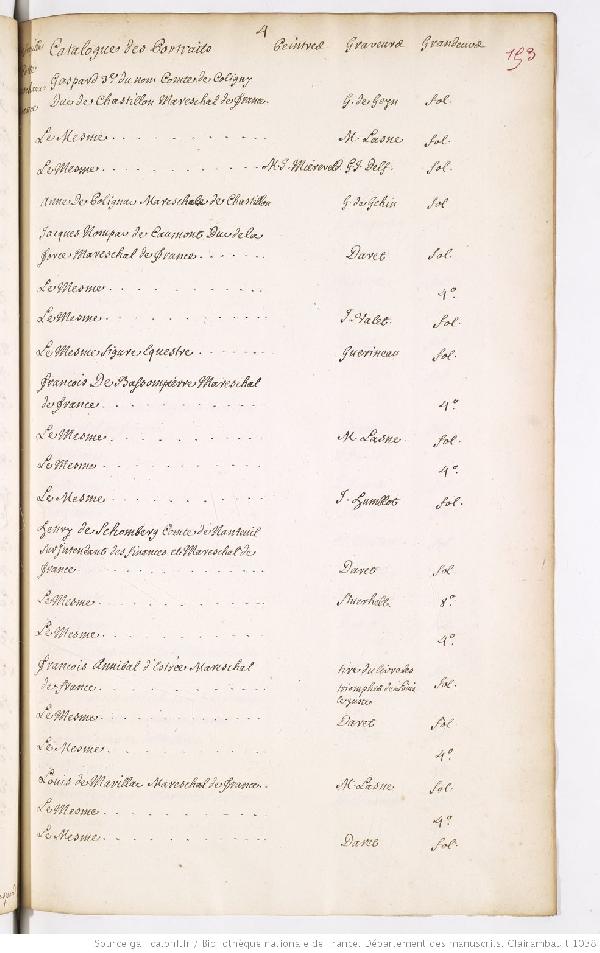 4
Catalogue des Portraits Peintres Graveurs Grandeurs
193
Gaspard 3e. du nom Comte de Coligny
Duc de Chastillon Mareschal de france. G. de Geyn fol.
Le Mesme . . . . . . . . . . M. Lasne fol.
Le Mesme . . . . . . . . . . M. J. Miereveld G. J. Delf. fol.
Anne de Polignac Mareschale de Chastillon G. de Gehin fol
Jacques Nompar de Caumont Duc de la
force Mareschal de france . . . . . . Daret fol.
Le Mesme . . . . . . . . . . 4o.
Le Mesme . . . . . . . . . . J. Valet. fol.
Le Mesme figure Equestre . . . . . . Guerineau fol.
francois De Bassompierre Mareschal
de france . . . . . . . . . . 4o.
Le Mesme . . . . . . . . . . M. Lasne fol.
Le Mesme . . . . . . . . . . 4o.
Le Mesme . . . . . . . . . . J. Humblot fol.
henry de Schomberg Comte de Nanteuil
surjntendant des finances et Mareschal de
france . . . . . . . . . . Daret fol
Le Mesme . . . . . . . . . . 8o.
Le Mesme . . . . . . . . . . 4o.
francois Annibal d'Estrée Mareschal tiré du livre des
de france . . . . . . . . . . triomphes de Louis fol.
le juste
Le Mesme . . . . . . . . . . Daret fol
Le Mesme . . . . . . . . . . 4o.
Louis de Marillac Mareschal de france . . M. Lasne fol.
Le Mesme . . . . . . . . . . 4o.
Le Mesme . . . . . . . . . . Daret fol.
Source gallica.bnf.fr / Bibliothèque nationale de France. Département des manuscrits. Clairambault 1038